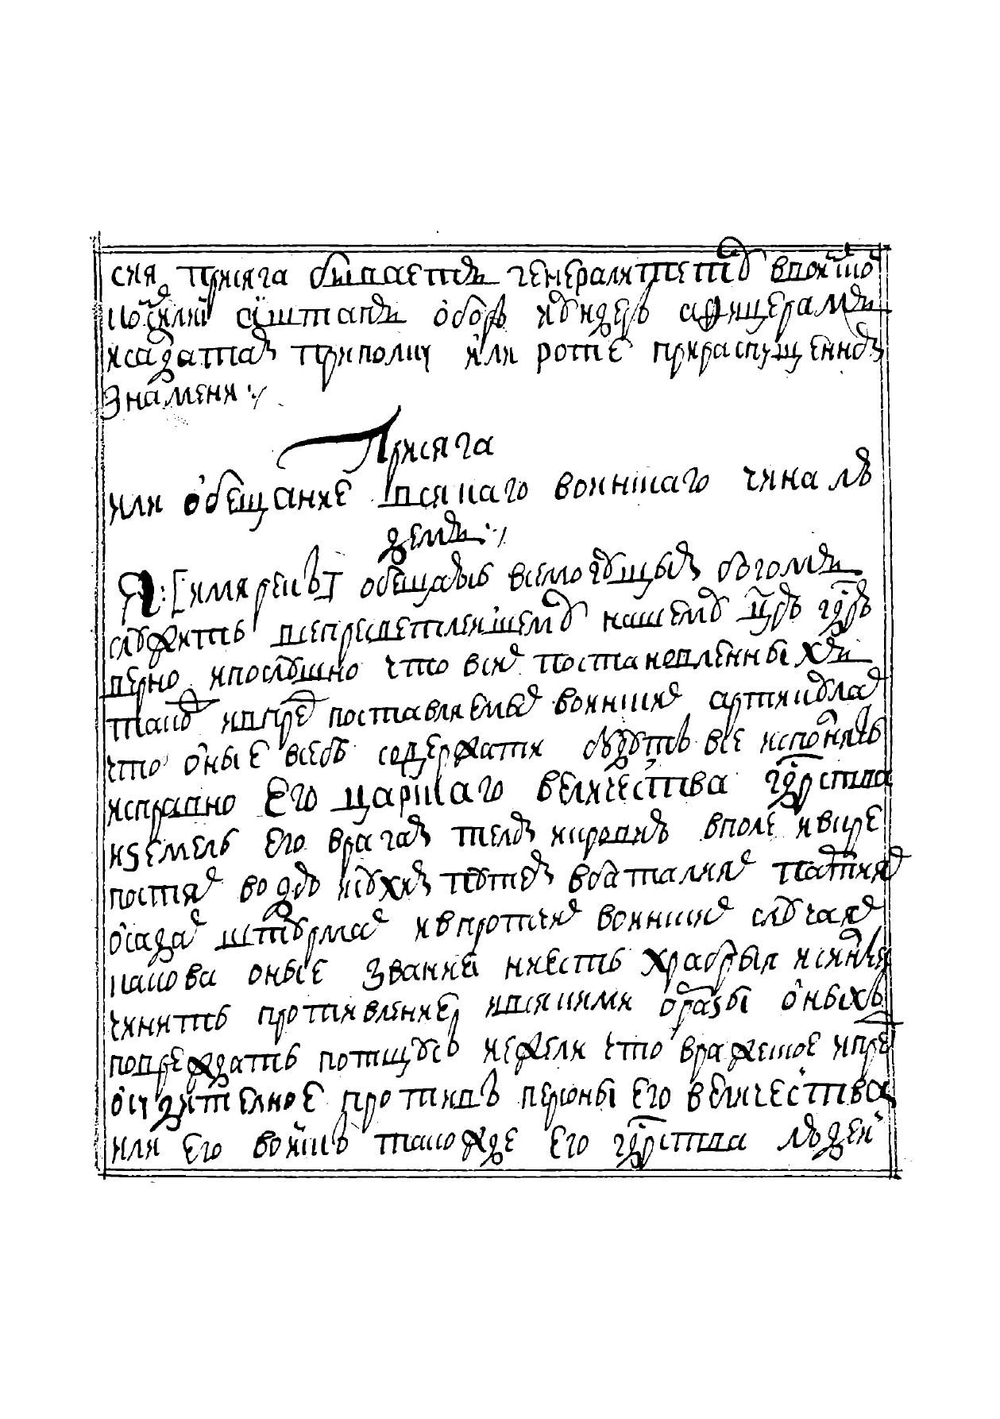 сия присяга бываетъ генералитету ввоинскои
коллегиі аштапъ ѻбор ιундеръ аѳицерамъ
исалдатам приполку или роте прираспущенном
знамени :/
Присяга
или ѻбещание всякаго воинскаго чина лю
демъ :/
Я: [имярекъ] ѻбещаюсь всемогущым богомъ
служить шепресветлеишему нашему црю гдрю
верно ипослушно что всех постановленныхъ
такоѵ ивпред поставляемых воинских артикулах
что ѻные всебе содержати будутъ все исполнять
исправно Его царскаго величества гдрства
иземель Его врагам телом икровию вполе ивкре
постях водою исухим путем вбаталиях партиях
ѻсадах штурмах ивпротчих воинских случаях
какова оные звания ниесть храброе исилное
чинить противление ивсякими ѻбразы ѻныхъ
повреждать потщусь иежели что вражеское ипред
ѻсудителное противъ персоны Его величества
или Его воискъ такожде Его гдрства людеи